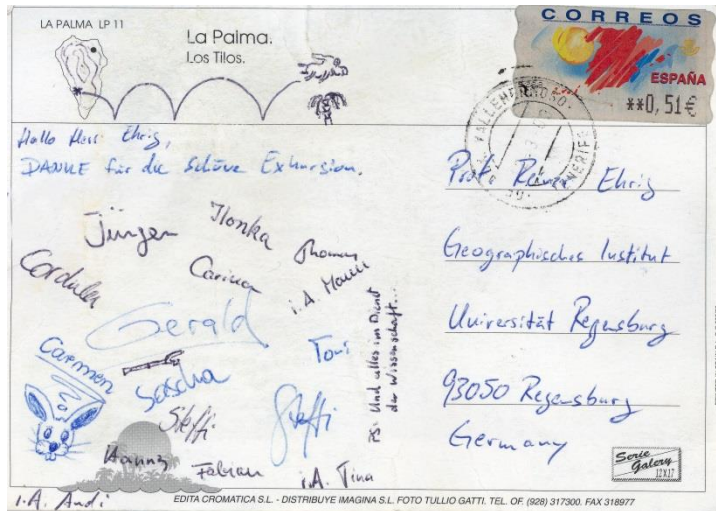 LA PALMA LP 11
La Palma.
Los Tilos.
CORREOS
ESPAÑA
**0,51€
Hallo Herr Ehrig,
DANKE für die schöne Exkursion.
Jürgen
Ilonka
Thomas
Cordula
Carina
i.A. Mann
Gerald
Carmen
Sascha
Toni
Steffi
Steffi
Hanna
Fabian
i.A. Tina
i.A. Andi
PS: Und alles im Dienst
der Wissenschaft...
Prof. Rainer Ehrig
Geographisches Institut
Universität Regensburg
93050 Regensburg
Germany
Serie
Galery
12X17
EDITA CROMATICA S.L. - DISTRIBUYE IMAGINA S.L. FOTO TULLIO GATTI. TEL. OF. (928) 317300. FAX 318977